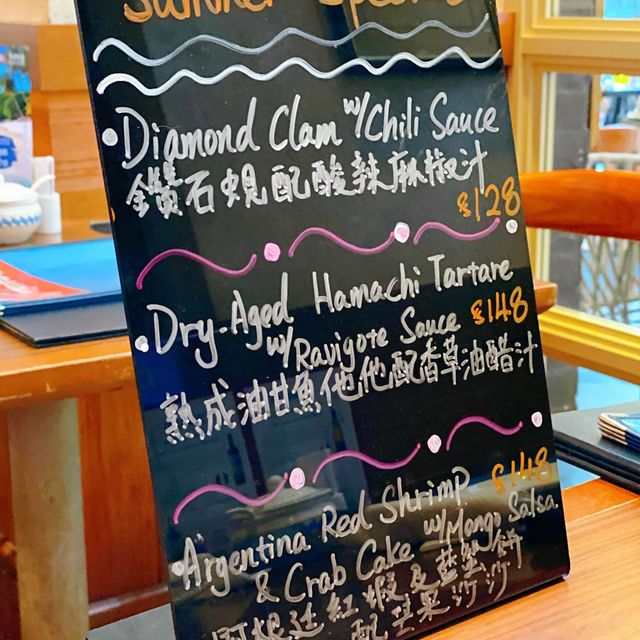 Summer Specials
Diamond Clam w/Chili Sauce
鑽石蜆配酸辣麻椒汁
$128
Dry-Aged Hamachi Tartare
w/ Ravigote Sauce $148
熟成油甘魚他他配香草油醋汁
Argentina Red Shrimp $148
& Crab Cake w/Mango Salsa
阿根廷紅蝦及藍蟹餅
配芒果沙沙